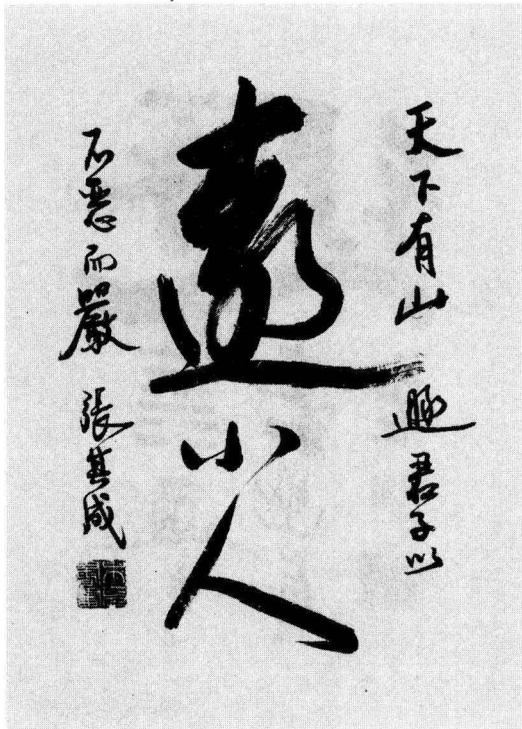 天下有山 遯 君子以
遠小人
不惡而嚴 張其成